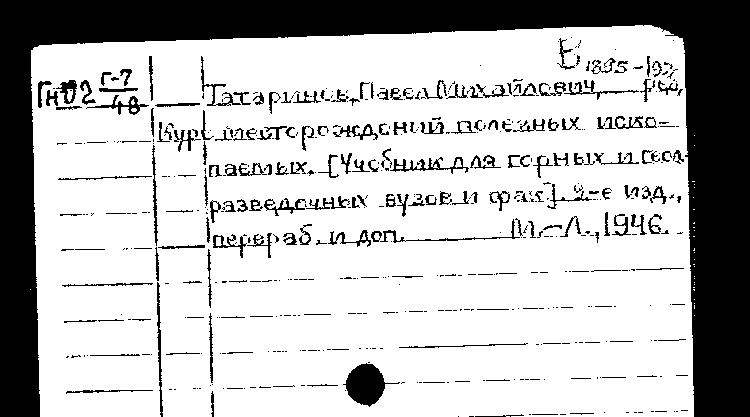 В
1895-197
Гн02 Г-7/48 Татаринов, Павел Михайлович, ред.
Курс месторождений полезных иско-
паемых. [Учебник для горных и геол.-
разведочных вузов и фак]. 2-е изд.,
перераб. и доп. М.-Л., 1946.